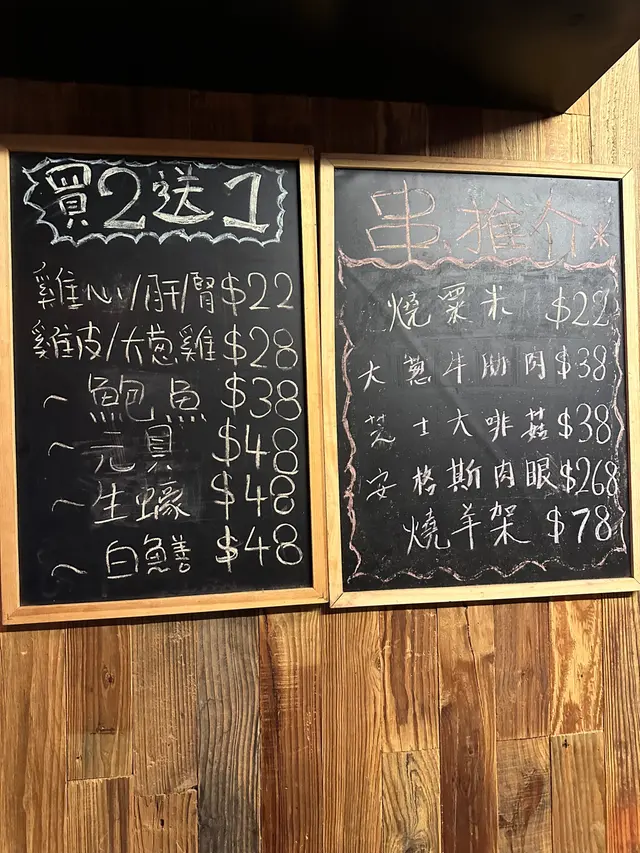 買2送1
雞心/肝/腎$22
雞皮/大蔥雞$28
~鮑魚 $38
~元貝 $48
~生蠔 $48
~白鱔 $48
串.推介*
燒粟米 $22
大蔥牛肋肉$38
芝士大啡菇$38
安格斯肉眼$268
燒羊架 $78